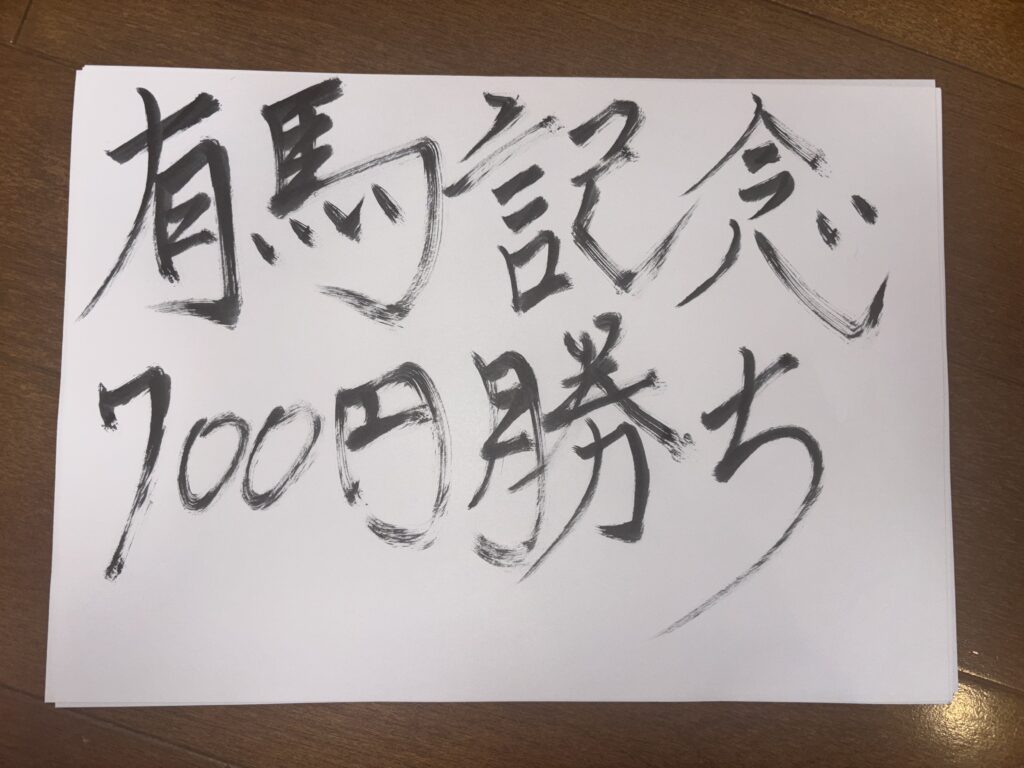 有馬記念
700円勝ち